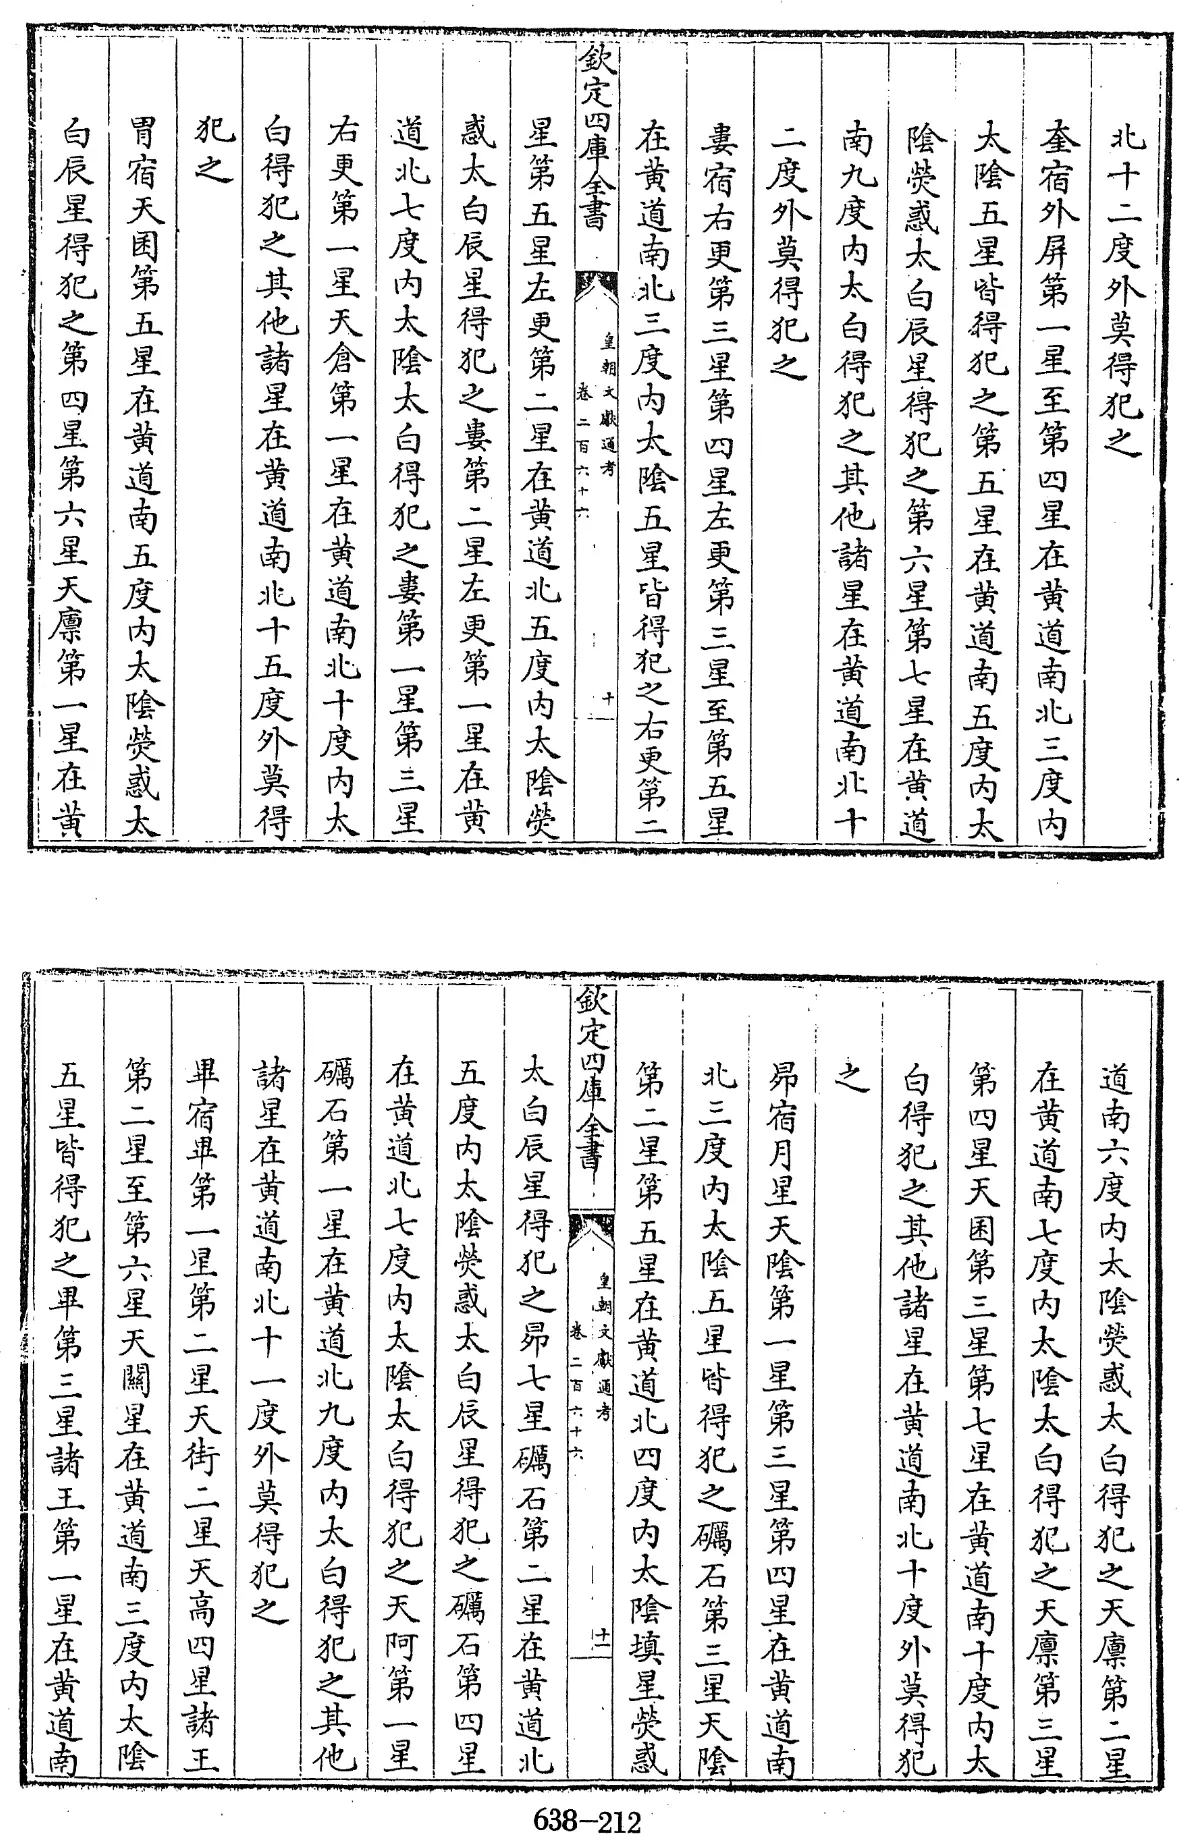 北十二度外莫得犯之
奎宿外屏第一星至第四星在黄道南北三度内
太陰五星皆得犯之第五星在黄道南五度内太
陰熒惑太白辰星得犯之第六星第七星在黄道
南九度内太白得犯之其他諸星在黄道南北十
二度外莫得犯之
婁宿右更第三星第四星左更第三星至第五星
在黄道南北三度内太陰五星皆得犯之右更第二
欽定四庫全書
皇朝文獻通考
卷二百六十六
十
星第五星左更第二星在黄道北五度内太陰熒
惑太白辰星得犯之婁第二星左更第一星在黄
道北七度内太陰太白得犯之婁第一星第三星
右更第一星天倉第一星在黄道南北十度内太
白得犯之其他諸星在黄道南北十五度外莫得
犯之
胃宿天囷第五星在黄道南五度内太陰熒惑太
白辰星得犯之第四星第六星天廪第一星在黄
道南六度内太陰熒惑太白得犯之天廪第二星
在黄道南七度内太陰太白得犯之天廪第三星
第四星天囷第三星第七星在黄道南十度内太
白得犯之其他諸星在黄道南北十度外莫得犯
之
昴宿月星天陰第一星第三星第四星在黄道南
北三度内太陰五星皆得犯之礪石第三星天陰
第二星第五星在黄道北四度内太陰填星熒惑
欽定四庫全書
皇朝文獻通考
卷二百六十六
十一
太白辰星得犯之昴七星礪石第二星在黄道北
五度内太陰熒惑太白辰星得犯之礪石第四星
在黄道北七度内太陰太白得犯之天阿第一星
礪石第一星在黄道北九度内太白得犯之其他
諸星在黄道南北十一度外莫得犯之
畢宿畢第一星第二星天街二星天高四星諸王
第二星至第六星天關星在黄道南三度内太陰
五星皆得犯之畢第三星諸王第一星在黄道南
638-212